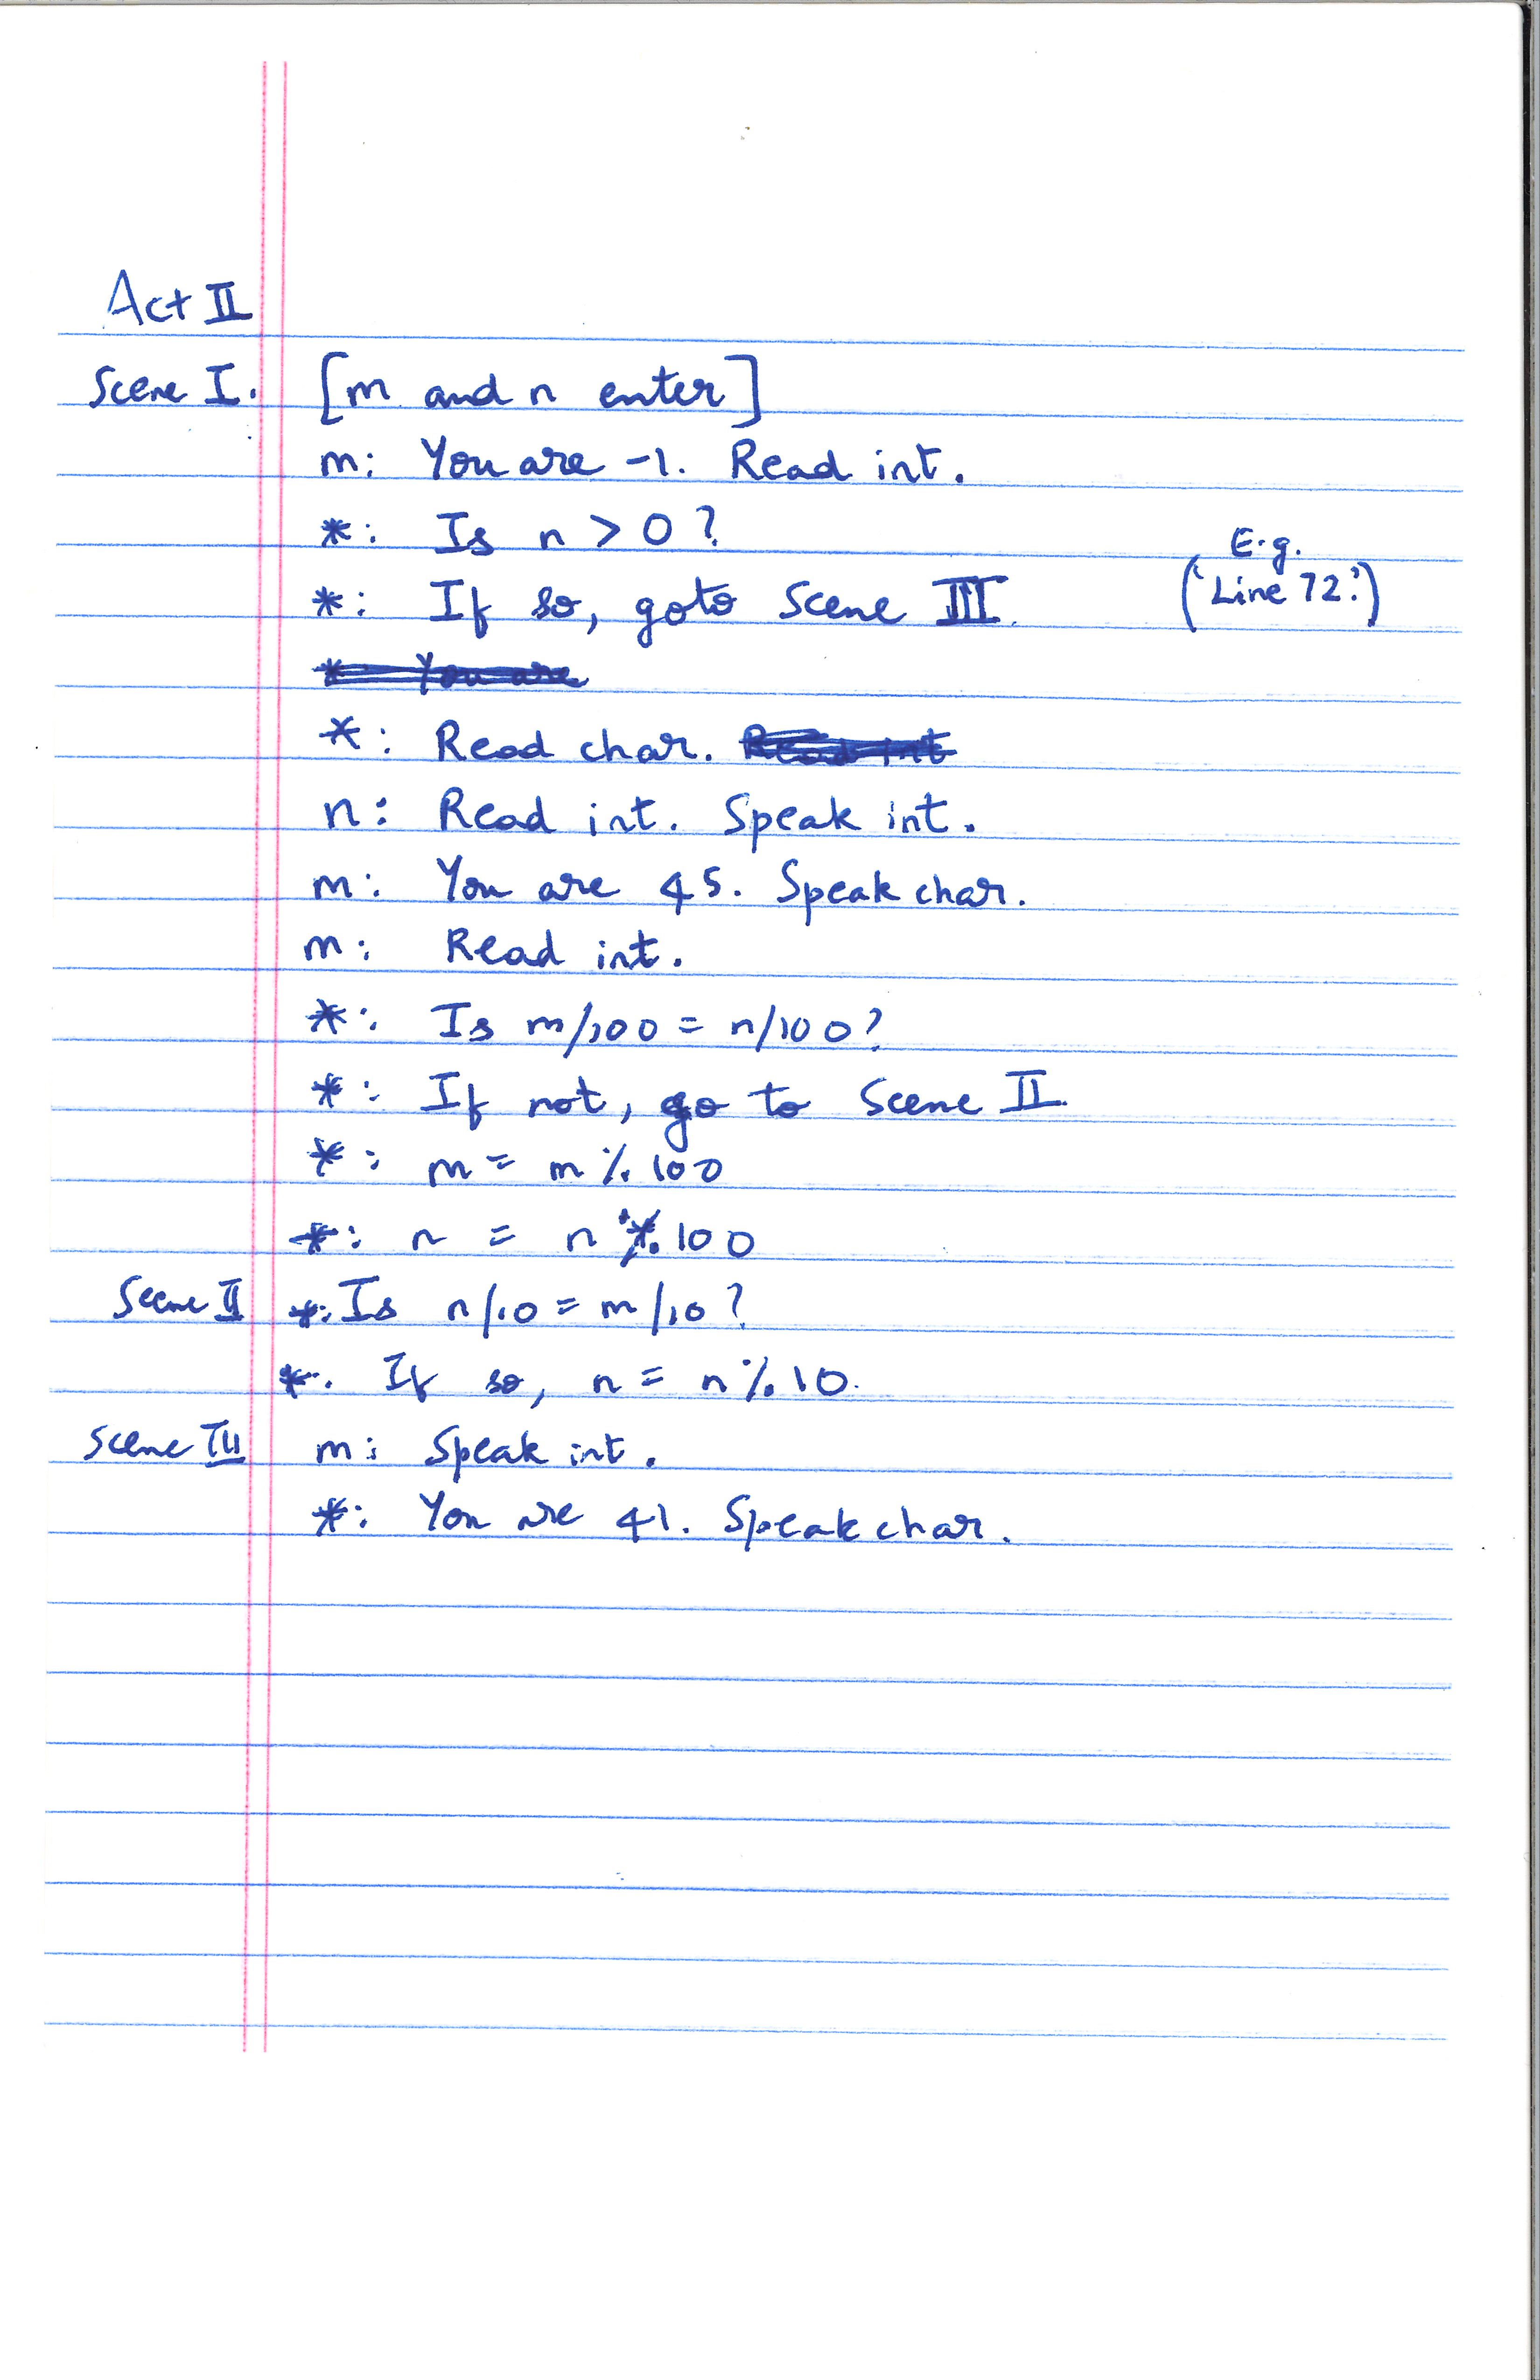 Act II
Scene I. [m and n enter]
m: You are -1. Read int.
*: Is n > 0?
E.g.
*: If so, goto Scene III. ('Line 72.')
* You are
*: Read char. Read int
n: Read int. Speak int.
m: You are 45. Speak char.
m: Read int.
*: Is m/100 = n/100?
*: If not, go to Scene II.
*: m = m % 100
*: n = n % 100
Scene II *: Is n/10 = m/10?
*: If so, n = n % 10.
Scene III m: Speak int.
*: You are 41. Speak char.